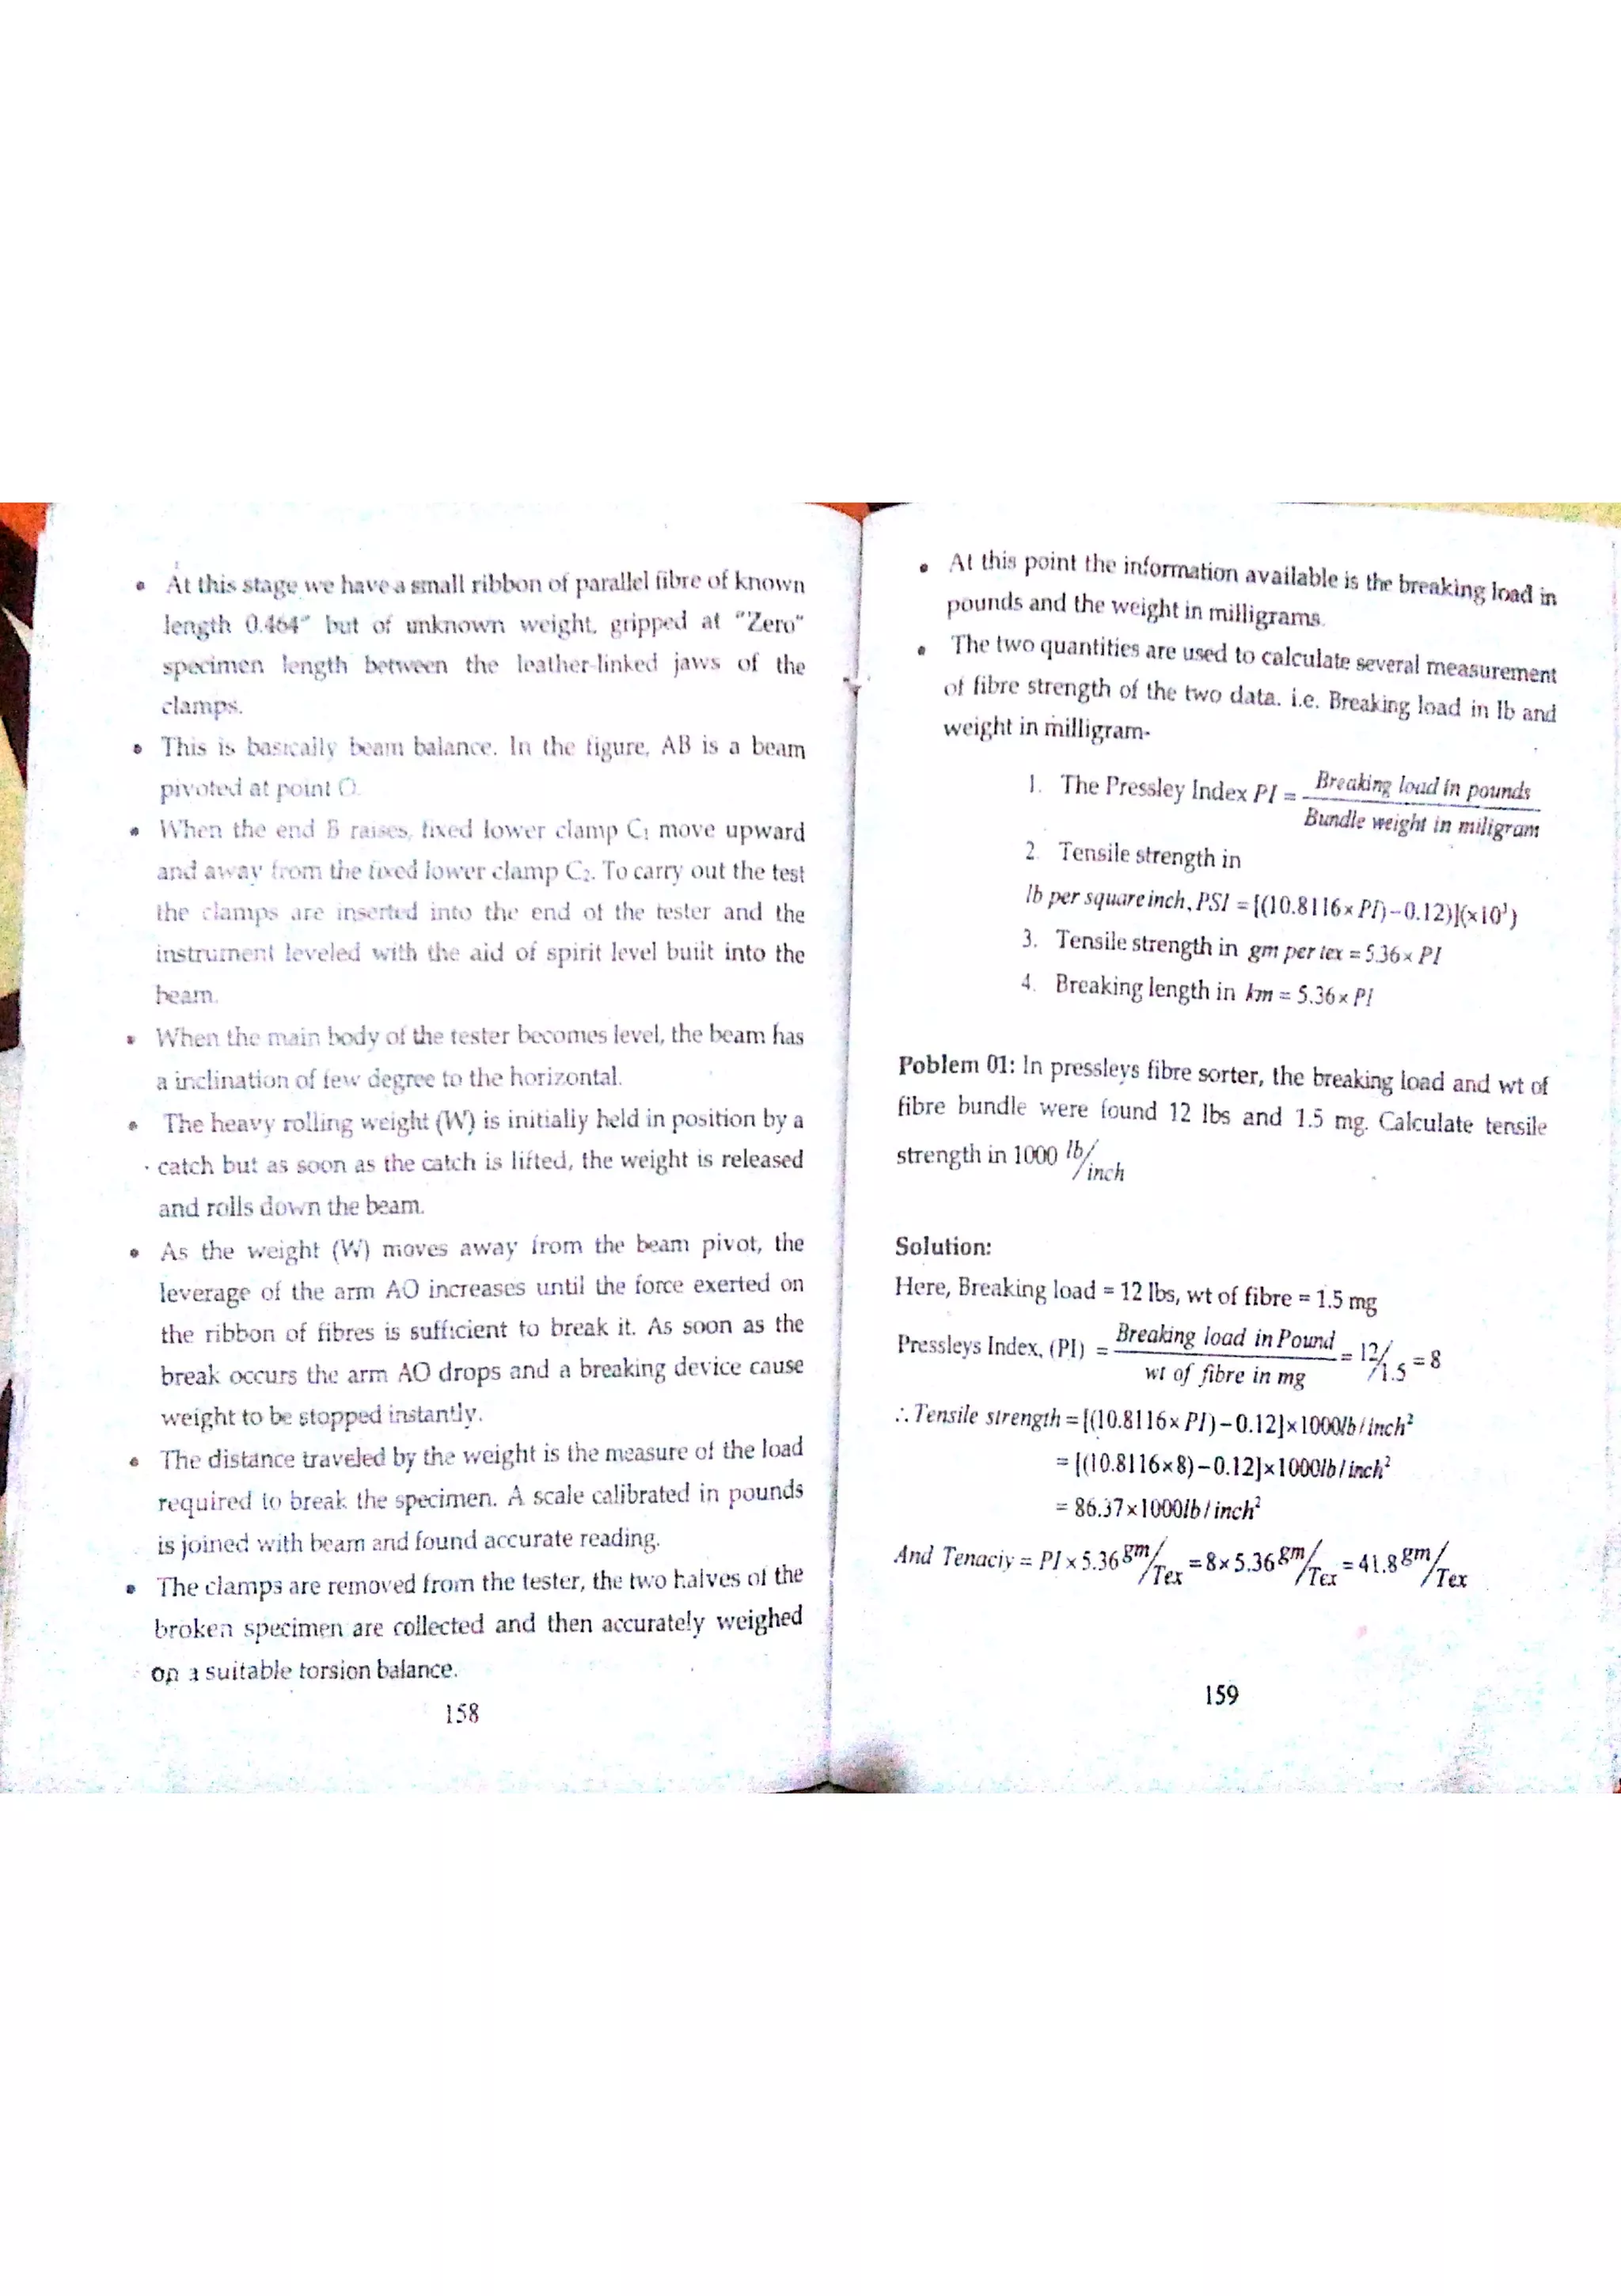 • At this stage we have a small ribbon of parallel fibre of known
length 0.464" but of unknown weight, gripped at "Zero"
specimen length between the leather-linked jaws of the
clamps.
• This is basically beam balance. In the figure, AB is a beam
pivoted at point O.
• When the end B raises, fixed lower clamp C₁ move upward
and away from the fixed lower clamp C₂. To carry out the test
the clamps are inserted into the end of the tester and the
instrument leveled with the aid of spirit level built into the
beam.
• When the main body of the tester becomes level, the beam has
a inclination of few degree to the horizontal.
• The heavy rolling weight (W) is initially held in position by a
catch but as soon as the catch is lifted, the weight is released
and rolls down the beam.
• As the weight (W) moves away from the beam pivot, the
leverage of the arm AO increases until the force exerted on
the ribbon of fibres is sufficient to break it. As soon as the
break occurs the arm AO drops and a breaking device cause
weight to be stopped instantly.
• The distance traveled by the weight is the measure of the load
required to break the specimen. A scale calibrated in pounds
is joined with beam and found accurate reading.
• The clamps are removed from the tester, the two halves of the
broken specimen are collected and then accurately weighed
on a suitable torsion balance.
158
• At this point the information available is the breaking load in
pounds and the weight in milligrams.
• The two quantities are used to calculate several measurement
of fibre strength of the two data. i.e. Breaking load in lb and
weight in milligram-
1. The Pressley Index PI = Breaking load in pounds / Bundle weight in miligram
2. Tensile strength in
lb per square inch, PSI = [(10.8116 × PI) – 0.12)](×10³)
3. Tensile strength in gm per tex = 5.36 × PI
4. Breaking length in km = 5.36 × PI
Poblem 01: In pressleys fibre sorter, the breaking load and wt of
fibre bundle were found 12 lbs and 1.5 mg. Calculate tensile
strength in 1000 lb/inch
Solution:
Here, Breaking load = 12 lbs, wt of fibre = 1.5 mg
Pressleys Index, (PI) = Breaking load in Pound / wt of fibre in mg = 12/1.5 = 8
∴ Tensile strength = [(10.8116 × PI) – 0.12] × 1000lb / inch²
= [(10.8116 × 8) – 0.12] × 1000lb / inch²
= 86.37 × 1000lb / inch²
And Tenaciy = PI × 5.36 gm/Tex = 8 × 5.36 gm/Tex = 41.8 gm/Tex
159